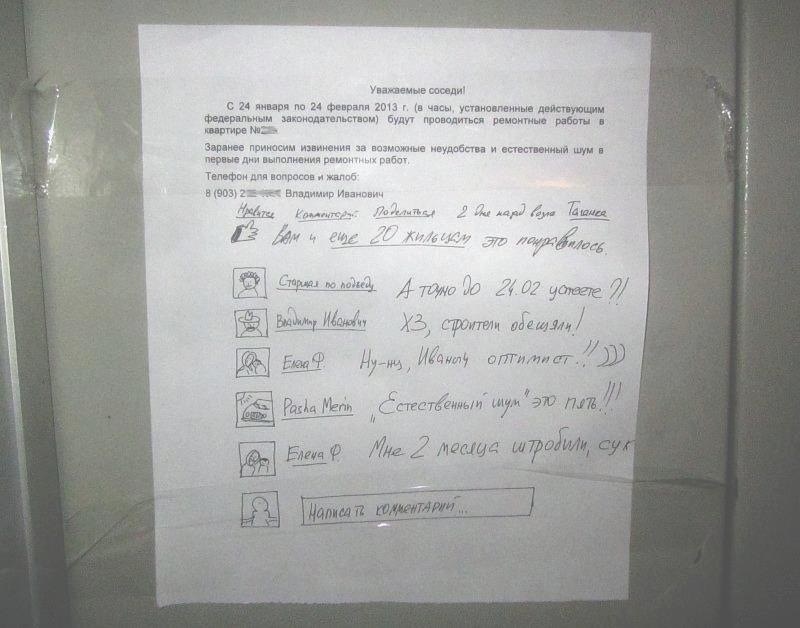 Уважаемые соседи!
С 24 января по 24 февраля 2013 г. (в часы, установленные действующим
федеральным законодательством) будут проводиться ремонтные работы в
квартире №
Заранее приносим извинения за возможные неудобства и естественный шум в
первые дни выполнения ремонтных работ.
Телефон для вопросов и жалоб:
8 (903) 2 Владимир Иванович
Нравится Комментарий Поделиться 2 дня назад возле Таганка
Вам и еще 20 жильцам это понравилось.
Старшая по подъезду А точно до 24.02 успеете?!
Владимир Иванович ХЗ, строители обещали!
Елена Ф. Ну-ну, Иваныч оптимист!! )))
Pasha Merin „Естественный шум" это пять!!!
Елена Ф. Мне 2 месяца штробили, сук
Написать комментарий...